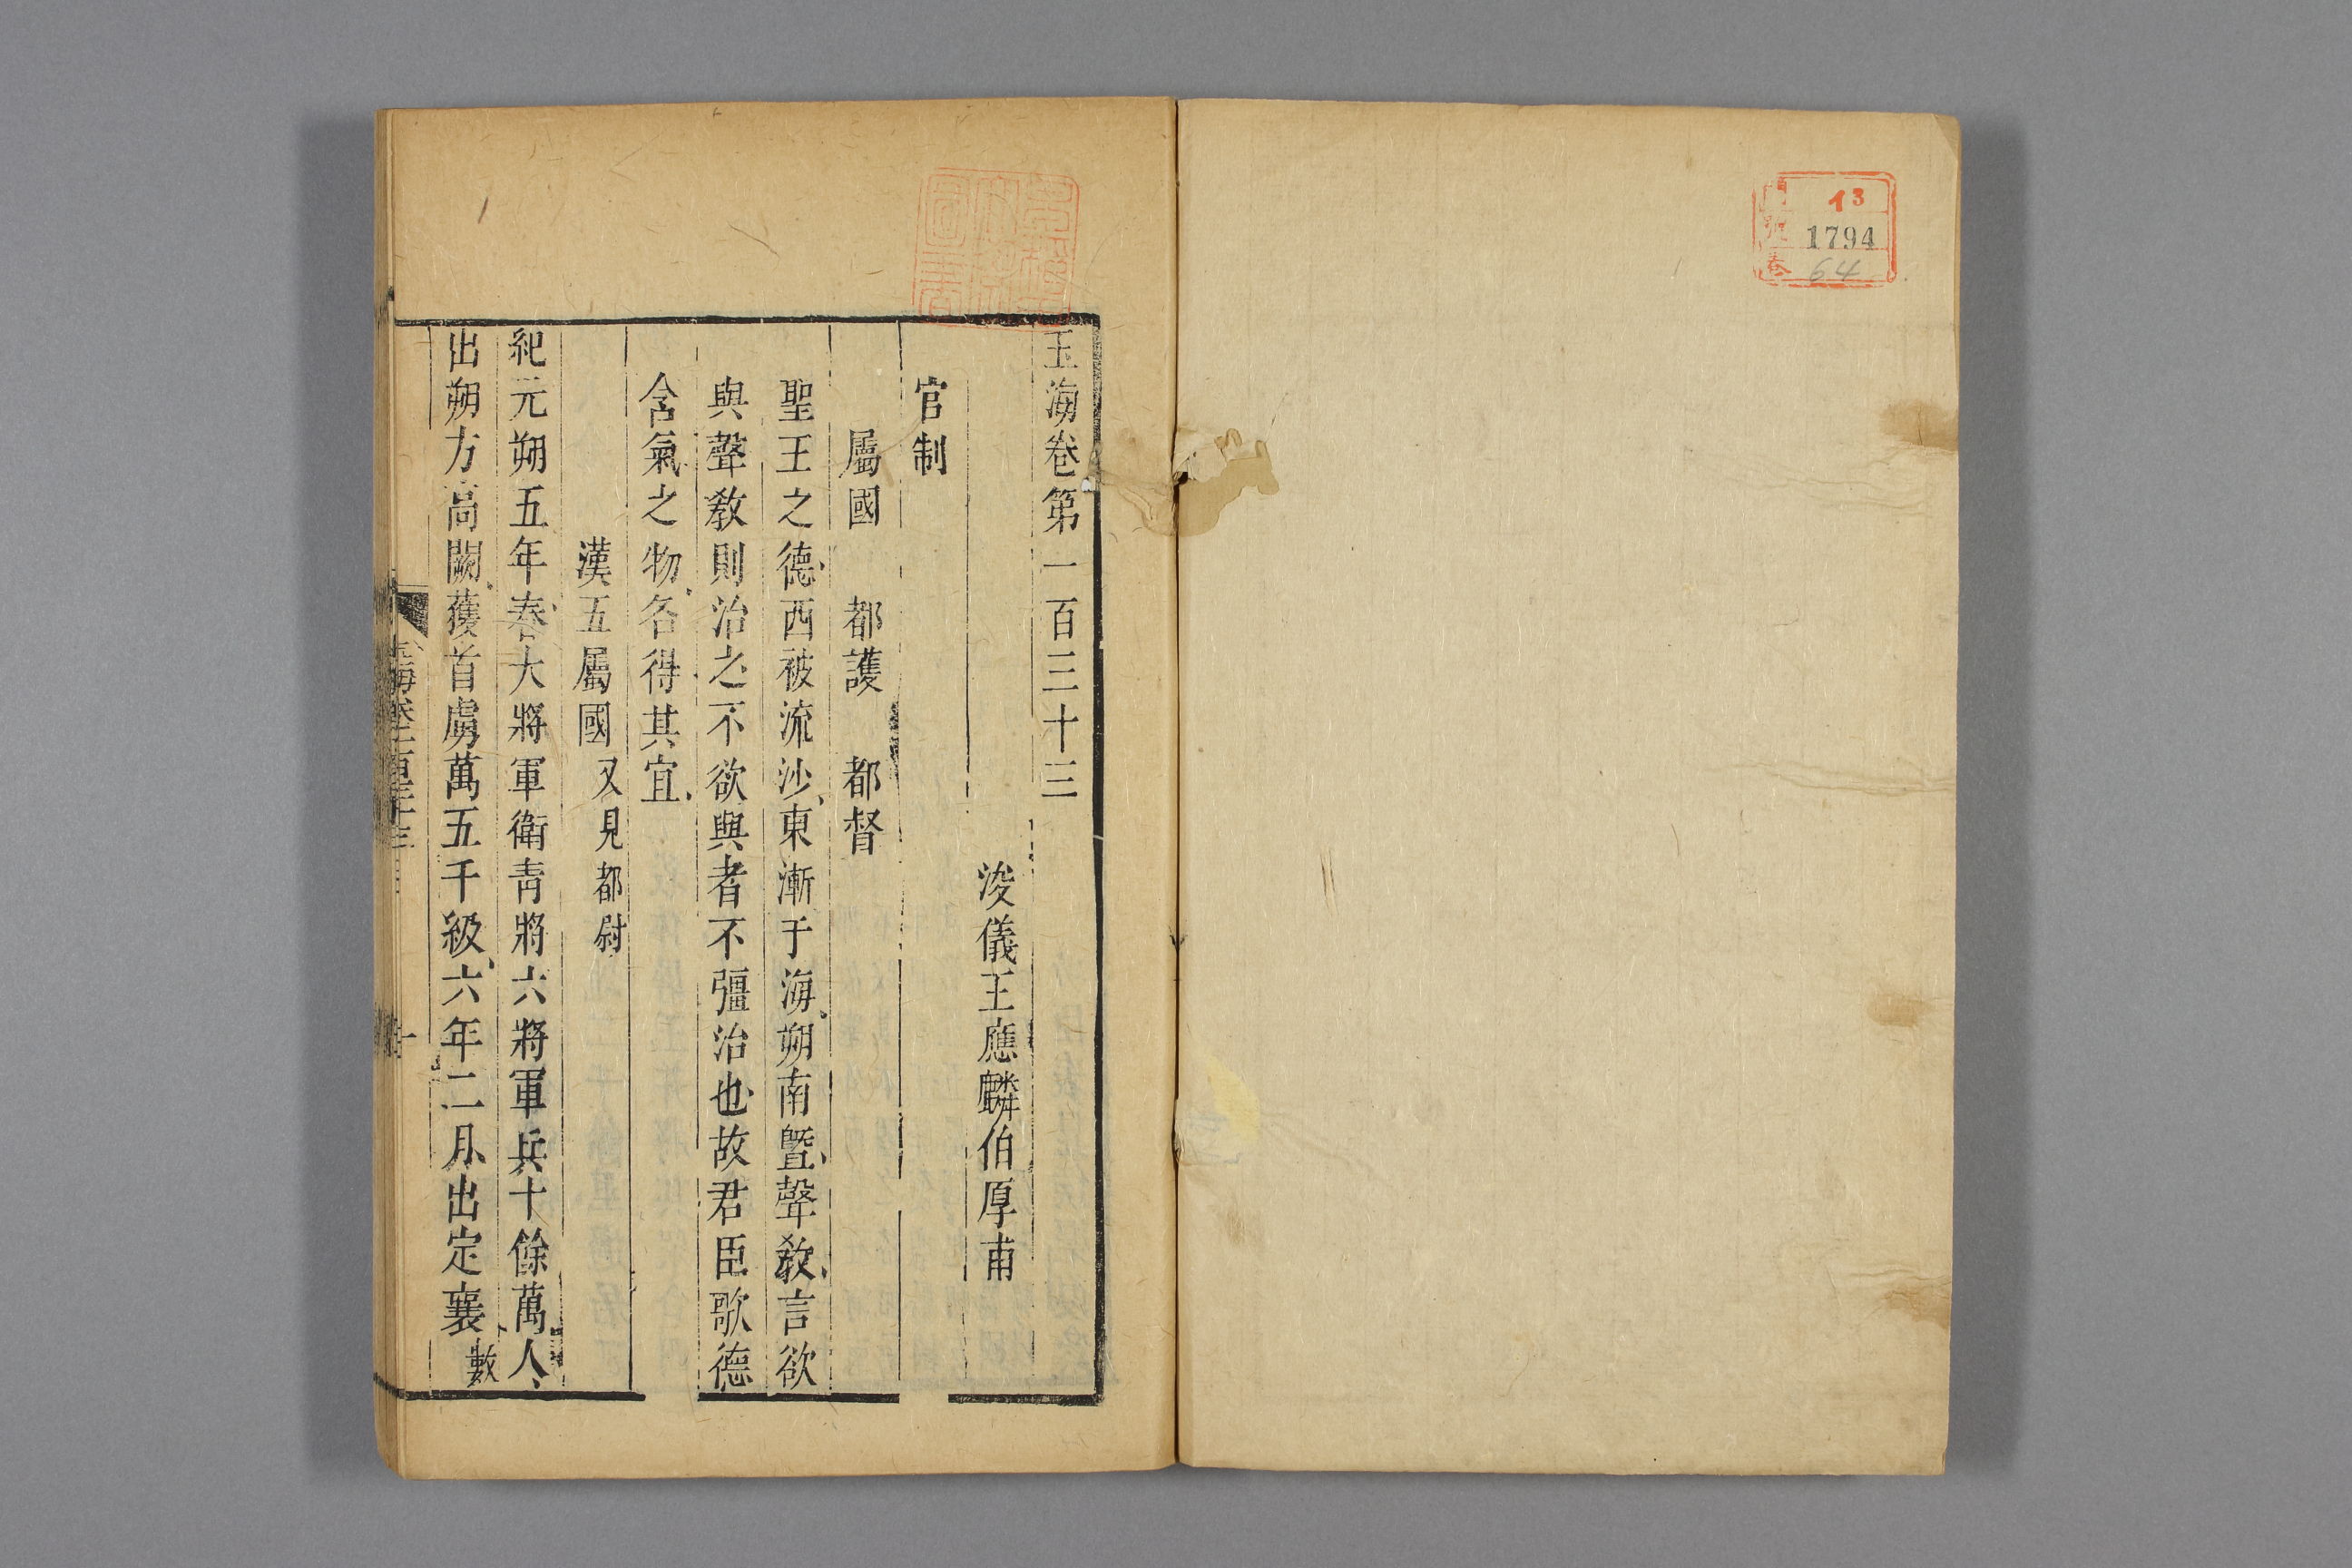 イ3
1794
94
玉海卷第一百三十三
浚儀王應麟伯厚甫
官制
屬國 都護 都督
聖王之德西被流沙東漸于海朔南曁聲敎言欲
與聲敎則治之不欲與者不彊治也故君臣歌德
含氣之物各得其宜
漢五屬國又見都尉
紀元朔五年春大將軍衛青將六將軍兵十餘萬人
出朔方高闕獲首虜萬五千級六年二月出定襄數